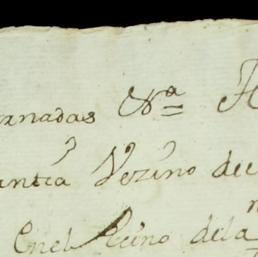 anadas &ra
antia Vezino del
en el Reino de la